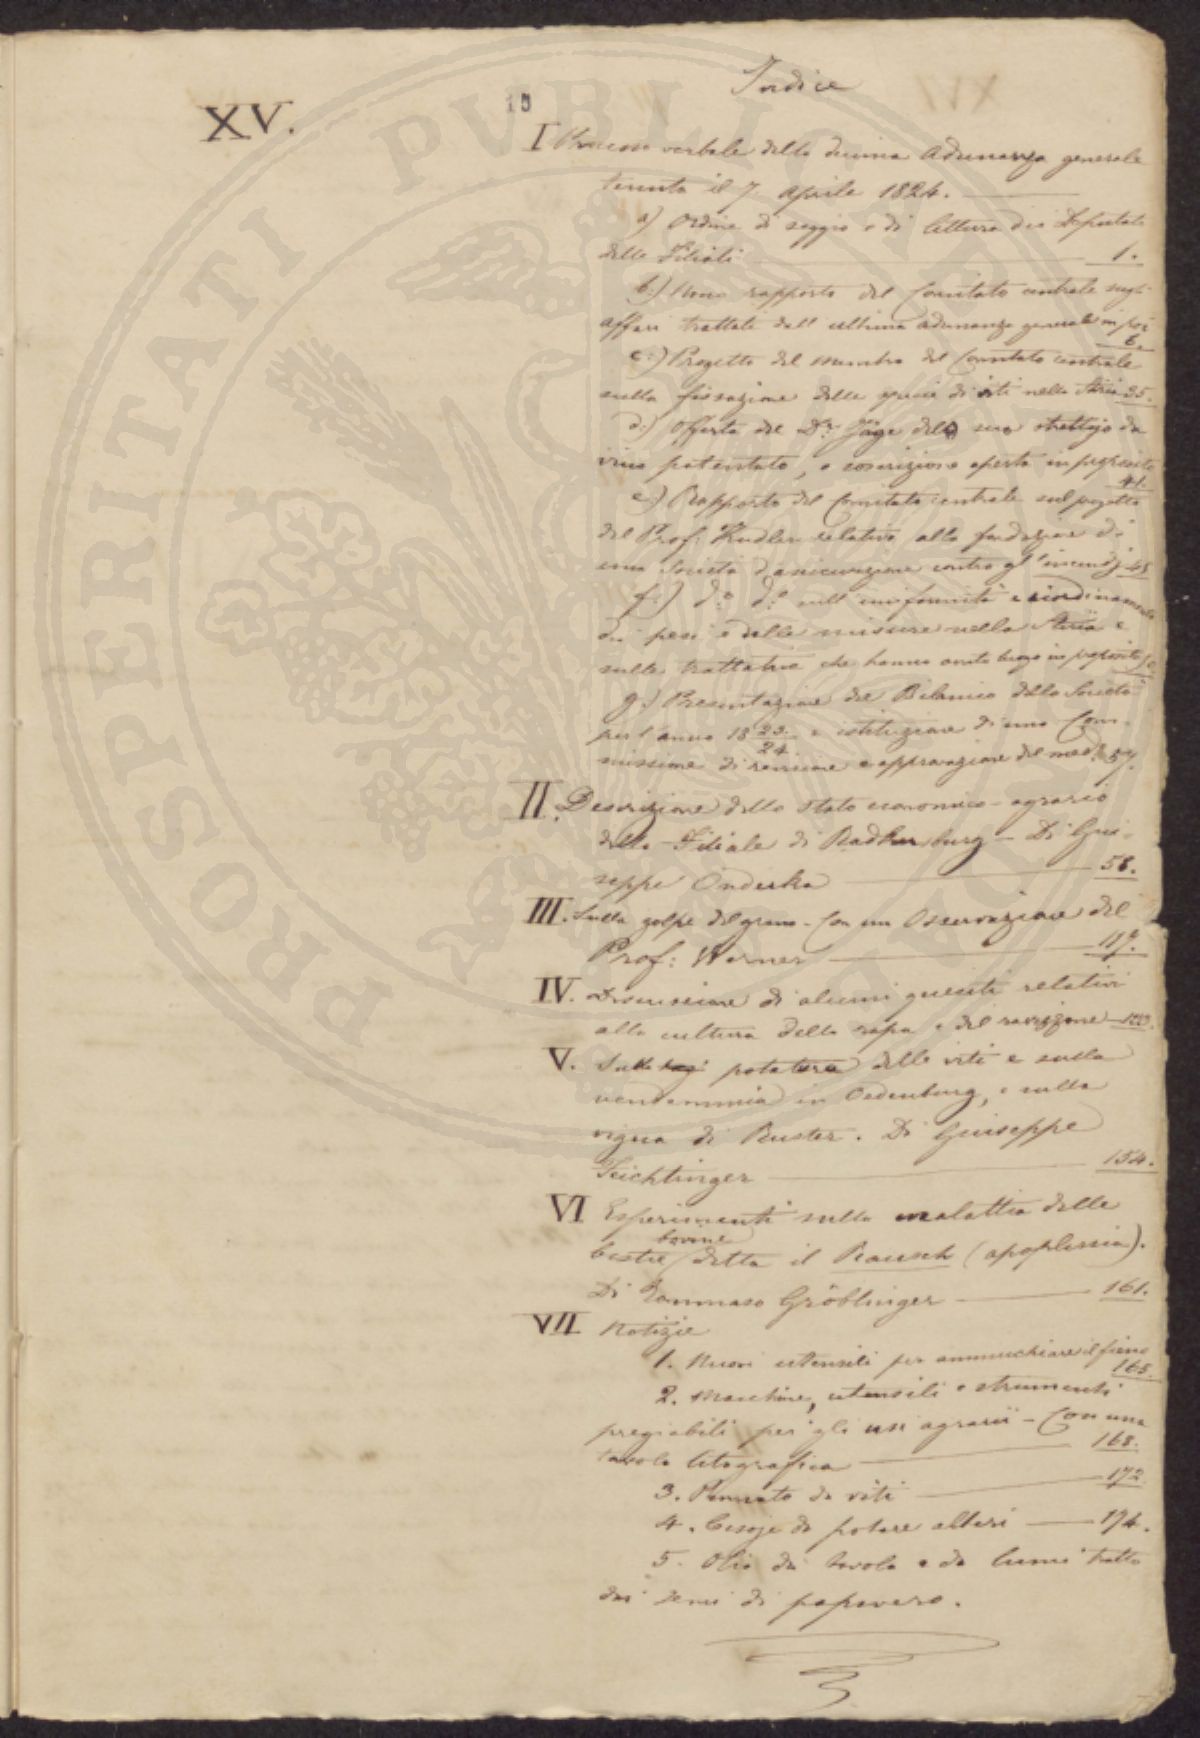 Indice
XV.
10
I Processo verbale della decima Adunanza generale
tenuta il 7. Aprile 1824.
a) Ordine di seggio e di lettura dei Deputati
delle Filiali 1.
b.) Nono rapporto del Comitato centrale sugli
affari trattati dall'ultima adunanza generale in poi
6.
c.) Progetto del membro del Comitato centrale
sulla fissazione delle specie di viti nella Stiria 35.
d.) Offerta del Dr. Jäge del suo strettojo da
vino patentato, e soscrizione aperta in proposito
41.
e.) Rapporto del Comitato centrale sul progetto
del Prof: Kudler relativo alla fondazione di
una Società d'assicurazione contro gl'incendj 45
f.) do. do. sull'uniformità e riordinamento
dei pesi e delle misure nella Stiria e
sulle trattative che hanno avuto luogo in proposito 50
g.) Presentazione del Bilancio della Società
per l'anno 1823./24 e istituzione di una Com-
missione di revisione e approvazione del med.o 57.
II. Descrizione dello stato economico-agrario
della Filiale di Radkersburg - Di Giu-
seppe Onderka 58.
III. Sulla golpe del grano - Con un Osservazione del
Prof: Werner 117.
IV. Discussione di alcuni quesiti relativi
alla cultura della rapa e del ravizzone 123.
V. Sulla potatura delle viti e sulla
vendemmia in Oedenburg, e sulla
vigna di Ruster. Di Guiseppe
Feichtinger 154.
VI Esperimenti sulla malattia delle
bestie bovine detta il Rausch (apoplessia).
Di Tommaso Gröblinger 161.
VII Notizie
1. Nuovi utensili per ammucchiare il fieno
165.
2. Macchine, utensili e strumenti
pregiabili per gli usi agrarii - Con una
tavola litografica 168.
3. Pennato da viti 172
4. Cesoje da potare alberi 174.
5. Olio da tavola e da lume tratto
dai semi di papavero.
PROSPERITATI PVBLICAE